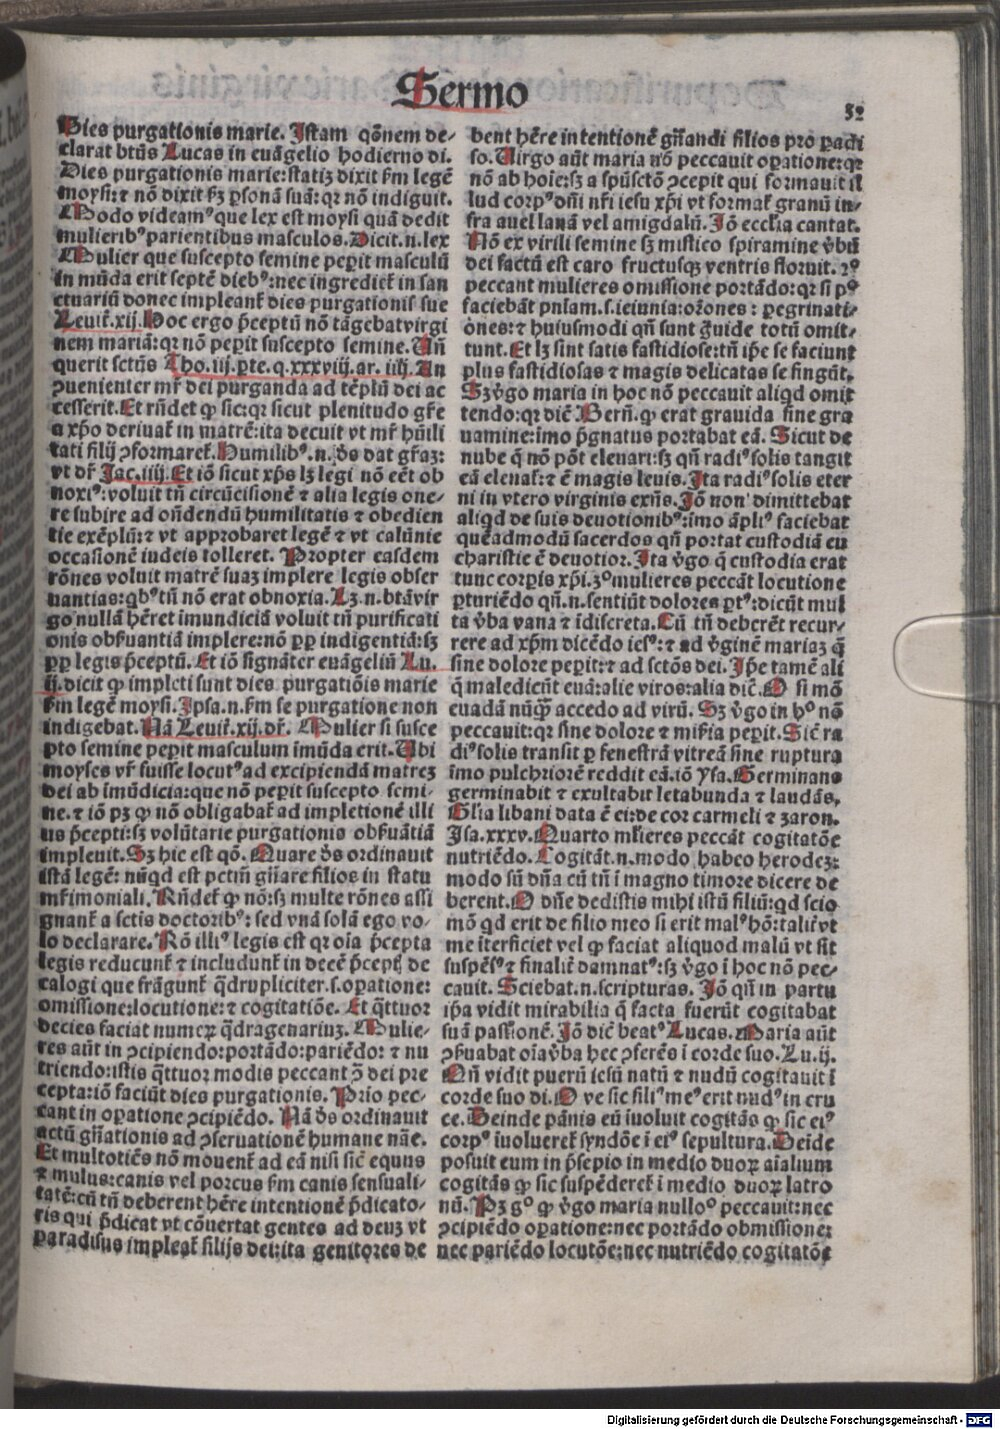 Sermo
52
Dies purgationis marie. Istam qõnem de⸗
clarat btũs Lucas in euãgelio hodierno di.
Dies purgationis marie: statiz dixit ẜm legẽ
moysi: ⁊ nõ dixit ẜz ꝑsonã suã: qꝛ nõ indiguit.
Modo videamꝰ que lex est moysi quã dedit
mulieribꝰ parientibus masculos. Dicit .n. lex
Mulier que suscepto semine peꝑit masculũ
in mũda erit septẽ diebꝰ: nec ingrediet̃ in san
ctuariũ donec impleant̃ dies purgationis sue
Leuit̃. xij. Hoc ergo p̃ceptũ nõ tãgebat virgi
nem mariã: qꝛ nõ peꝑit suscepto semine. Uñ
querit sctũs Tho. iij. ꝑte. q. xxxviij. ar. iiij. An
ↄuenienter mr̃ dei purganda ad tẽplũ dei ac
cesserit. Et rñdet ꝙ sic: qꝛ sicut plenitudo gr̃e
a xp̃o deriuat̃ in matrẽ: ita decuit vt mr̃ hũili
tati filij ↄformaret̃. Humilibꝰ .n. d̃s dat gr̃az:
vt dr̃ Jac. iiij. Et iõ sicut xp̃s lz legi nõ eẽt ob
noxiꝰ: voluit tñ circũcisionẽ ⁊ alia legis one⸗
re subire ad oñdendũ humilitatis ⁊ obedien
tie exẽplũ: ⁊ vt approbaret legẽ ⁊ vt calũnie
occasionẽ iudeis tolleret. Propter easdem
rõnes voluit matrẽ suaz implere legis obser
uantias: qbꝰ tñ nõ erat obnoxia. Lz .n. btã vir
go nullã hẽret imundiciã voluit tñ purificati
onis obẜuantiã implere: nõ ꝓp indigentiã: sz
ꝓp legis p̃ceptũ. Et iõ signãter euãgeliũ Lu.
ij. dicit ꝙ impleti sunt dies purgatiõis marie
ẜm legẽ moysi. Ipsa .n. ẜm se purgatione non
indigebat. Nã Leuit̃. xij. dr̃. Mulier si susce
pto semine peꝑit masculum ĩmũda erit. Ubi
moyses vr̃ fuisse locutꝰ ad excipiendã matrez
dei ab ĩmũdicia: que nõ peꝑit suscepto semi⸗
ne. ⁊ iõ pz ꝙ nõ obligabat̃ ad impletionẽ illi
us p̃cepti: sz volũtarie purgationis obẜuãtiã
impleuit. Sz hic est qõ. Quare d̃s ordinauit
istã legẽ: nũqd est pctm̃ gñare filios in statu
mr̃imoniali. Rñdet̃ ꝙ nõ: sz multe rõnes assi
gnant̃ a sctis doctoribꝰ: sed vnã solã ego vo⸗
lo declarare. Rõ illiꝰ legis est qꝛ oĩa p̃cepta
legis reducunt̃ ⁊ includunt̃ in decẽ p̃cept̃ de
calogi que frãgunt̃ q̃drupliciter .s. oꝑatione:
omissione: locutione: ⁊ cogitatiõe. Et q̃ttuor
decies faciat numeꝝ q̃dragenariuz. Mulie⸗
res aũt in ↄcipiendo: portãdo: pariẽdo: ⁊ nu
triendo: istis q̃ttuor modis peccant ↄ̃ dei pre
cepta: iõ faciũt dies purgationis. Prio pec⸗
cant in oꝑatione ↄcipiẽdo. Nã d̃s ordinauit
actũ gñationis ad ↄseruationẽ humane nãe.
Et multotiẽs nõ mouent̃ ad eã nisi sic̃ equus
⁊ mulus: canis vel porcus ẜm canis sensuali⸗
tatẽ: cũ tñ deberent hẽre intentionẽ p̃dicato⸗
ris qui p̃dicat vt cõuertat gentes ad deuz vt
paradisus impleat̃ filijs dei: ita genitores de
bent hẽre intentionẽ gñandi filios pro ꝑadi
so. Uirgo aũt maria nõ peccauit oꝑatione: qꝛ
nõ ab hoĩe: sz a spũsctõ ↄcepit qui formauit il
lud corpꝰ dñi nr̃i iesu xp̃i vt format̃ granũ in⸗
fra auellanã vel amigdalũ. Iõ eccl̃ia cantat.
Nõ ex virili semine sz mistico spiramine ṽbũ
dei factũ est caro fructusqz ventris floruit. 2º
peccant mulieres omissione portãdo: qꝛ si pº
faciebãt pñiam .s. ieiunia: orõnes: pegrinati⸗
ones: ⁊ huiusmodi qñ sunt g̃uide totũ omit⸗
tunt. Et lz sint satis fastidiose: tñ ip̃e se faciunt
plus fastidiosas ⁊ magis delicatas se fingũt.
Sz v̓go maria in hoc nõ peccauit aliqd omit
tendo: qꝛ dic̃ Berñ. ꝙ erat grauida sine gra
uamine: imo p̃gnatus portabat eã. Sicut de
nube q̃ nõ põt eleuari: sz qñ radiꝰ solis tangit
eã eleuat̃: ⁊ ẽ magis leuis. Ita radiꝰ solis eter
ni in vtero virginis exñs. Iõ non dimittebat
aliqd de suis deuotionibꝰ: imo ãpliꝰ faciebat
quẽadmodũ sacerdos qñ portat custodiã eu
charistie ẽ deuotior. Ita v̓go q̃ custodia erat
tunc corꝑis xp̃i. 3º mulieres peccãt locutione
ꝑturiẽdo qñ .n. sentiũt dolores ꝑtꝰ: dicũt mul
ta v̓ba vana ⁊ ĩdiscreta. Cũ tñ deberẽt recur⸗
rere ad xp̃m dicẽdo iesꝰ: ⁊ ad v̓ginẽ mariaz q̃
sine dolore peꝑit: ⁊ ad sctõs dei. Ip̃e tamẽ ali
q̃ maledicũt euã: alie viros: alia dic̃. O si mõ
euadã nũꝗ̃ accedo ad virũ. Sz v̓go in hº nõ
peccauit: qꝛ sine dolore ⁊ mis̃ia peꝑit. Sic̃ ra
diꝰ solis transit ꝑ fenestrã vitreã sine ruptura
ĩmo pulchriorẽ reddit eã. iõ ysa. Germinans
germinabit ⁊ exultabit letabunda ⁊ laudãs.
Gl̃ia libani data ẽ ei: decor carmeli ⁊ zaron.
Isa. xxxv. Quarto ml̃ieres peccãt cogitatõe
nutriẽdo. Cogitãt .n. modo habeo herodez:
modo sũ dña cũ tñ ĩ magno timore dicere de
berent. O dñe dedistis mihi istũ filiũ: qd scio
mõ qd erit de filio meo si erit malꝰ hõ: talit̃ vt
me ĩterficiet vel ꝙ faciat aliquod malũ vt sit
suspẽsꝰ ⁊ finalit̃ damnatꝰ: sz v̓go ĩ hoc nõ pec⸗
cauit. Sciebat .n. scripturas. Iõ qñ in partu
ip̃a vidit mirabilia q̃ facta fuerũt cogitabat
suã passionẽ. Iõ dic̃ beatꝰ Lucas. Maria aũt
ↄẜuabat oĩa v̓ba hec ↄferẽs ĩ corde suo. Lu. ij.
Qñ vidit puerũ iesũ natũ ⁊ nudũ cogitauit ĩ
corde suo di. O ve sic filiꝰ meꝰ erit nudꝰ in cru
ce. Deinde pãnis eũ ĩuoluit cogitãs ꝙ sic eiꝰ
corpꝰ ĩuolueret̃ syndõe ĩ eiꝰ sepultura. Deĩde
posuit eum in p̃sepio in medio duoꝝ aĩalium
cogitãs ꝙ sic suspẽderet̃ ĩ medio duoꝝ latro
nũ. Pz gº ꝙ v̓go maria nulloº peccauit: nec
ↄcipiẽdo oꝑatione: nec portãdo obmissione:
nec pariẽdo locutõe: nec nutriẽdo cogitatõe
Digitalisierung gefördert durch die Deutsche Forschungsgemeinschaft - DFG